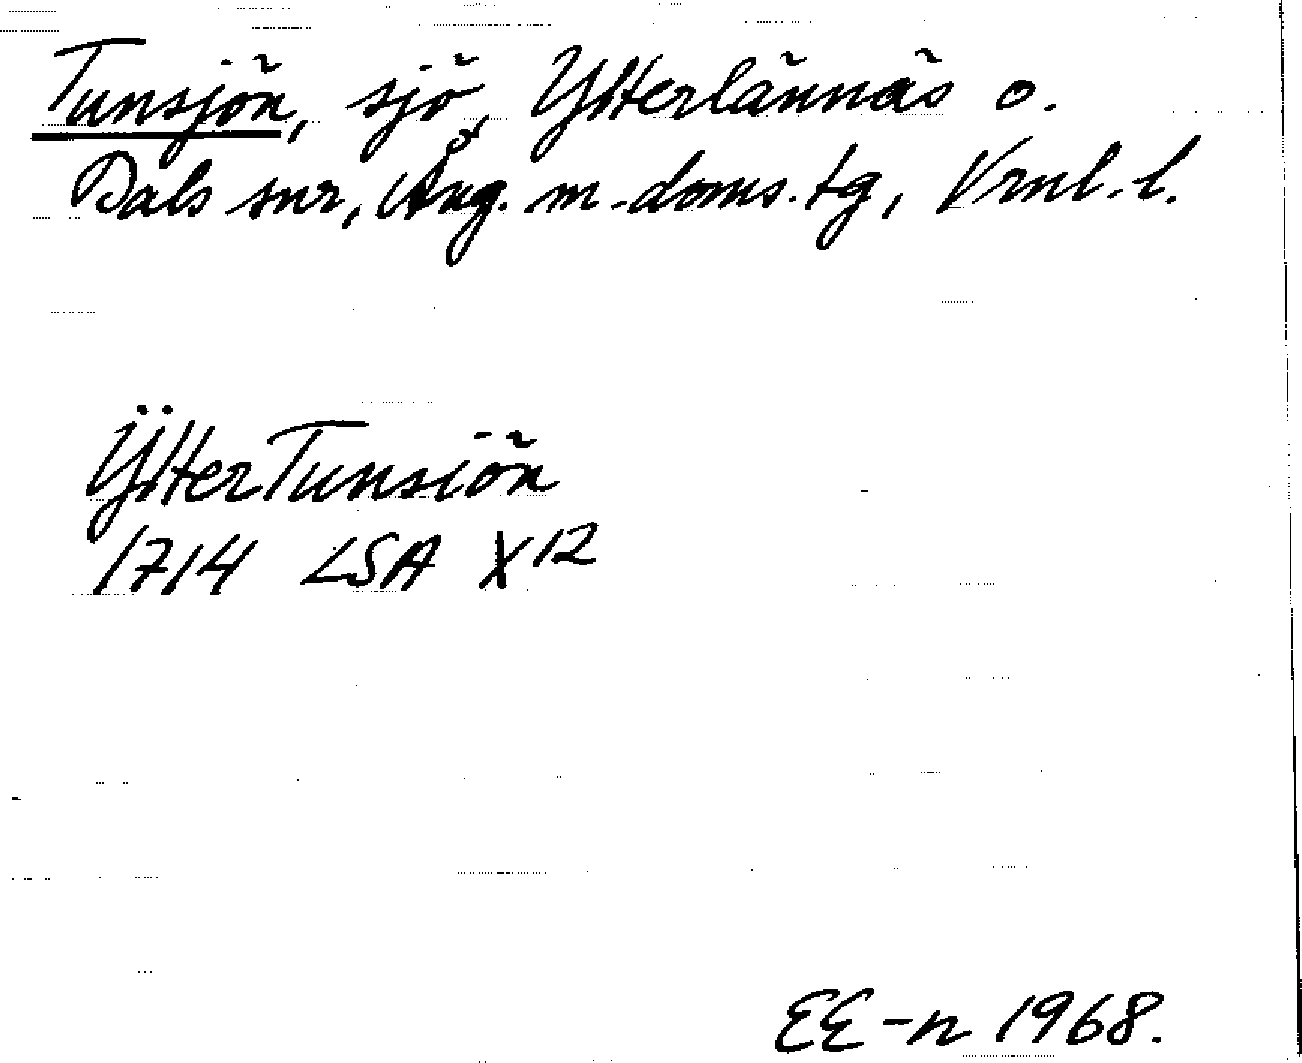 Tunsjön, sjö, Ytterlännäs o.
Dals snr, Ång. m-doms. tg, Vrnl. l.
ÿtterTunsiön
1714 LSA X12
EE-n 1968.